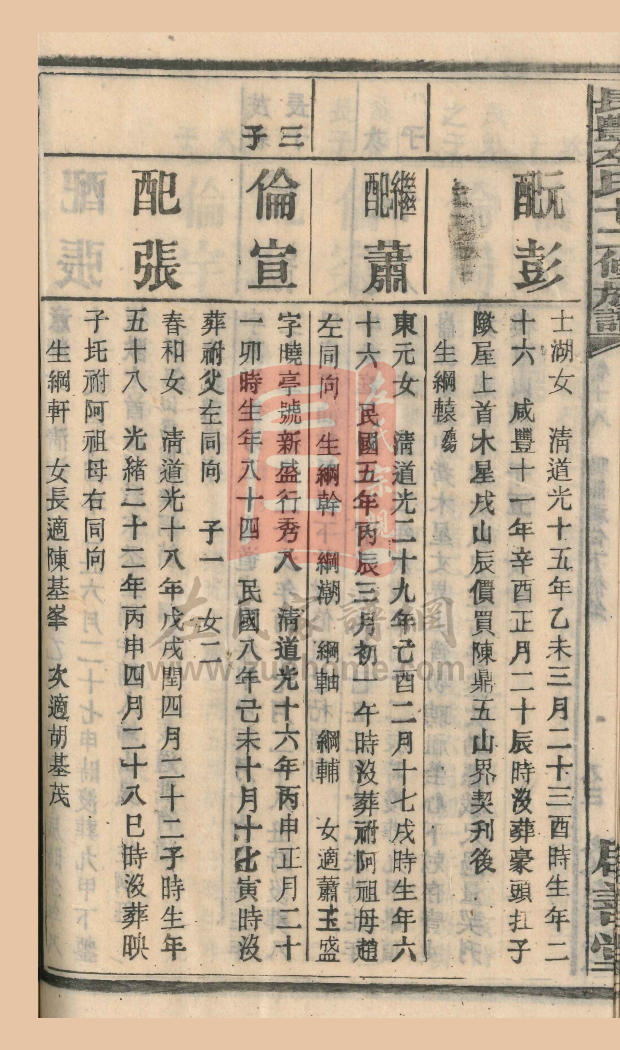 酛彭
士湖女 淸道光十五年乙未三月二十三酉時生年二
十六 咸豐十一年辛酉正月二十辰時沒葬豪頭扛子
屋上首木星戌山辰價買陳鼎五山界契刋後
生綱轅
繼配蕭
東元女 淸道光二十九年己酉二月十七戌時生年六
十六 民國五年丙辰三月初 午時沒葬祔阿祖母趙
左同向 生綱幹 綱潮 綱軸 綱輔 女適蕭玉盛
三子
倫宣
字曉亭號新盛行秀八 淸道光十六年丙申正月二十
一卯時生年八十四 民國八年己未十月十七寅時沒
葬祔父左同向 子一 女二
配張
春和女 淸道光十八年戊戌閏四月二十二子時生年
五十八 光緖二十二年丙申四月二十八巳時沒葬映
子圫祔阿祖母右同向
生綱軒 女長適陳基峯 次適胡基茂
左氏家譜網
www.zuohome.com